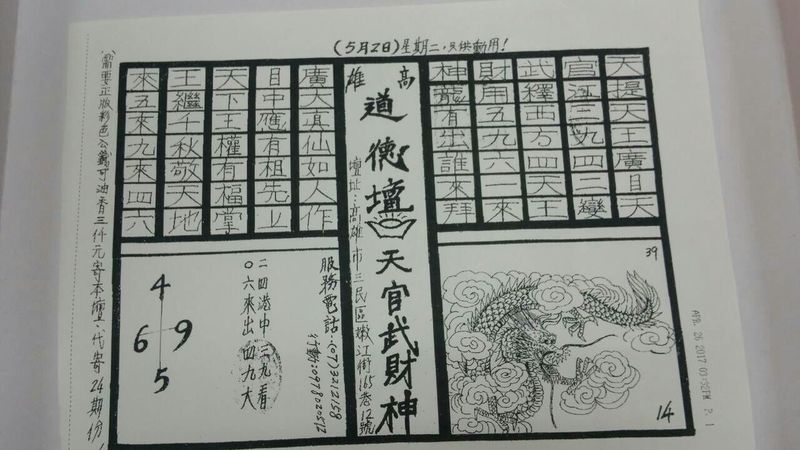 (5月2日)星期二,只供動用!
天提天王廣目天
官逕三九四二變
武繹西方四天王
財甪五九六一來
神龍有出誰來拜
高雄
道德壇天官武財神
壇址:高雄市三民區嫩江街165巷12號
廣大真仙如人作
目中應有祖先上
天下王權有福掌
王繼千秋敬天地
來五來九來四六
39
14
服務電話:(07)3212158
行動:0978020512
二四港中二九看
〇六來出四九大
4
6 9
5
需要正版彩色公籤可油香三仟元寄本壇,代寄24期份
APR. 26 2017 03:52PM P. 1